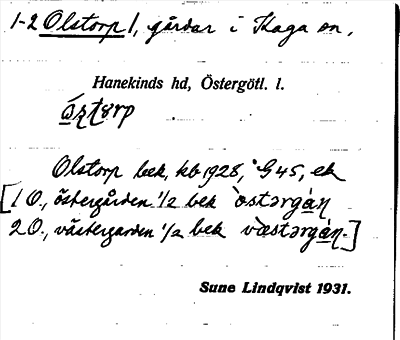 1-2 Olstorp /, gårdar i Kaga sn,
Hanekinds hd, Östergötl. l.
Olstorp bek, kb 1928, G45, ek
[1 O., östergården 1/2 bek òstərgá̀ɳ
2 O., västergården 1/2 bek væ̀stərgá̀ɳ.]
Sune Lindqvist 1931.